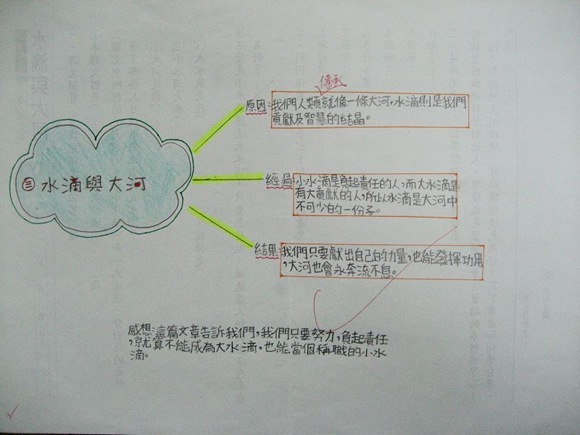 ㊂水滴與大河
傳承
原因:我們人類就像一條大河,水滴則是我們
貢獻及智慧的結晶。
經過:小水滴是負起責任的人,而大水滴是
有大貢獻的人,所以水滴是大河中
不可少的一份子。
結果:我們只要獻出自己的力量,也能發揮功用
,大河也會永奔流不息。
感想:這篇文章告訴我們,我們只要努力,負起責任
,就算不能成為大水滴,也能當個稱職的小水
滴。